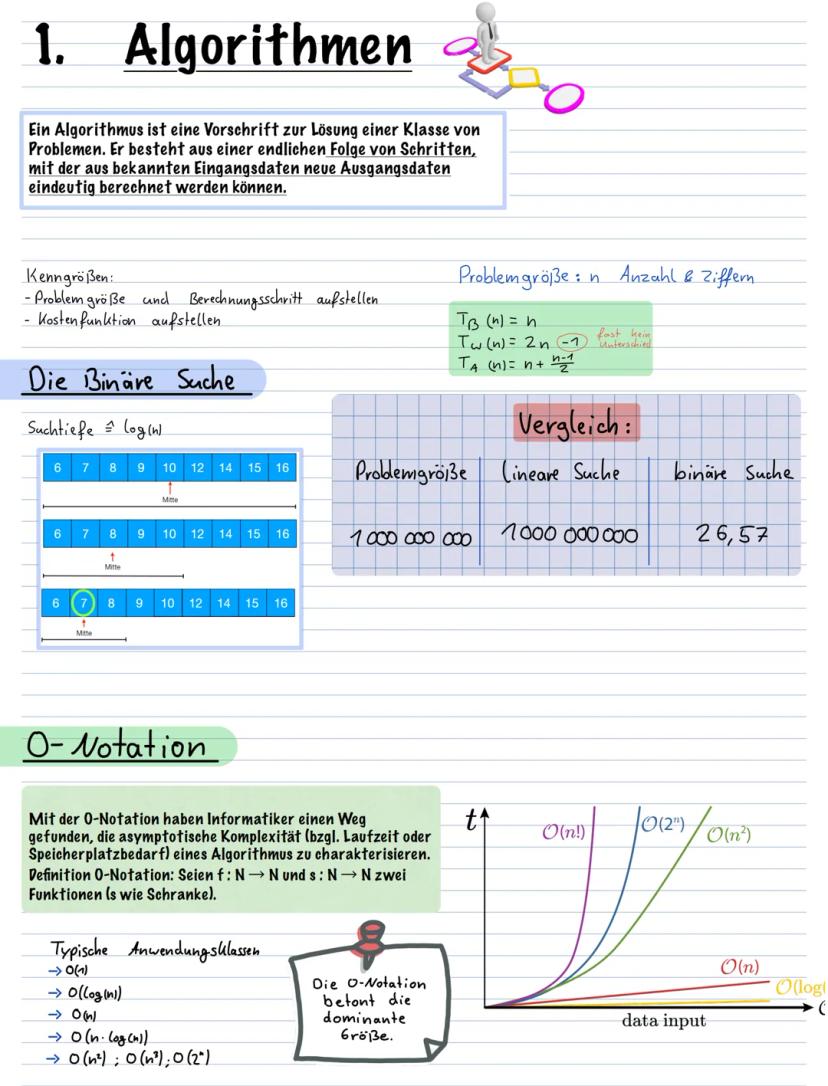 1. Algorithmen
Ein Algorithmus ist eine Vorschrift zur Lösung einer Klasse von
Problemen. Er besteht aus einer endlichen Folge von Schritten,
mit der aus bekannten Eingangsdaten neue Ausgangsdaten
eindeutig berechnet werden können.
Kenngrößen:
- Problemgröße und Berechnungsschritt aufstellen
- Kostenfunktion aufstellen
Problemgröße: n Anzahl & Ziffern
T_B (n) = n
T_W (n) = 2n -1 fast kein
Unterschied
T_A (n) = n + (n-1)/2
Die Binäre Suche
Suchtiefe ≙ log(n)
6 7 8 9 10 12 14 15 16
Mitte
6 7 8 9 10 12 14 15 16
Mitte
6 7 8 9 10 12 14 15 16
Mitte
Vergleich:
Problemgröße lineare Suche binäre Suche
1 000 000 000 1000 000 000 26,57
O-Notation
Mit der O-Notation haben Informatiker einen Weg
gefunden, die asymptotische Komplexität (bzgl. Laufzeit oder
Speicherplatzbedarf) eines Algorithmus zu charakterisieren.
Definition O-Notation: Seien f : N → N und s : N → N zwei
Funktionen (s wie Schranke).
Typische Anwendungsklassen
→ O(1)
→ O(log(n))
→ O(n)
→ O(n·log(n))
→ O(n²) ; O(n³) ; O(2ⁿ)
Die O-Notation
betont die
dominante
Größe.
t
O(n!)
O(2ⁿ)
O(n²)
O(n)
O(log(
data input